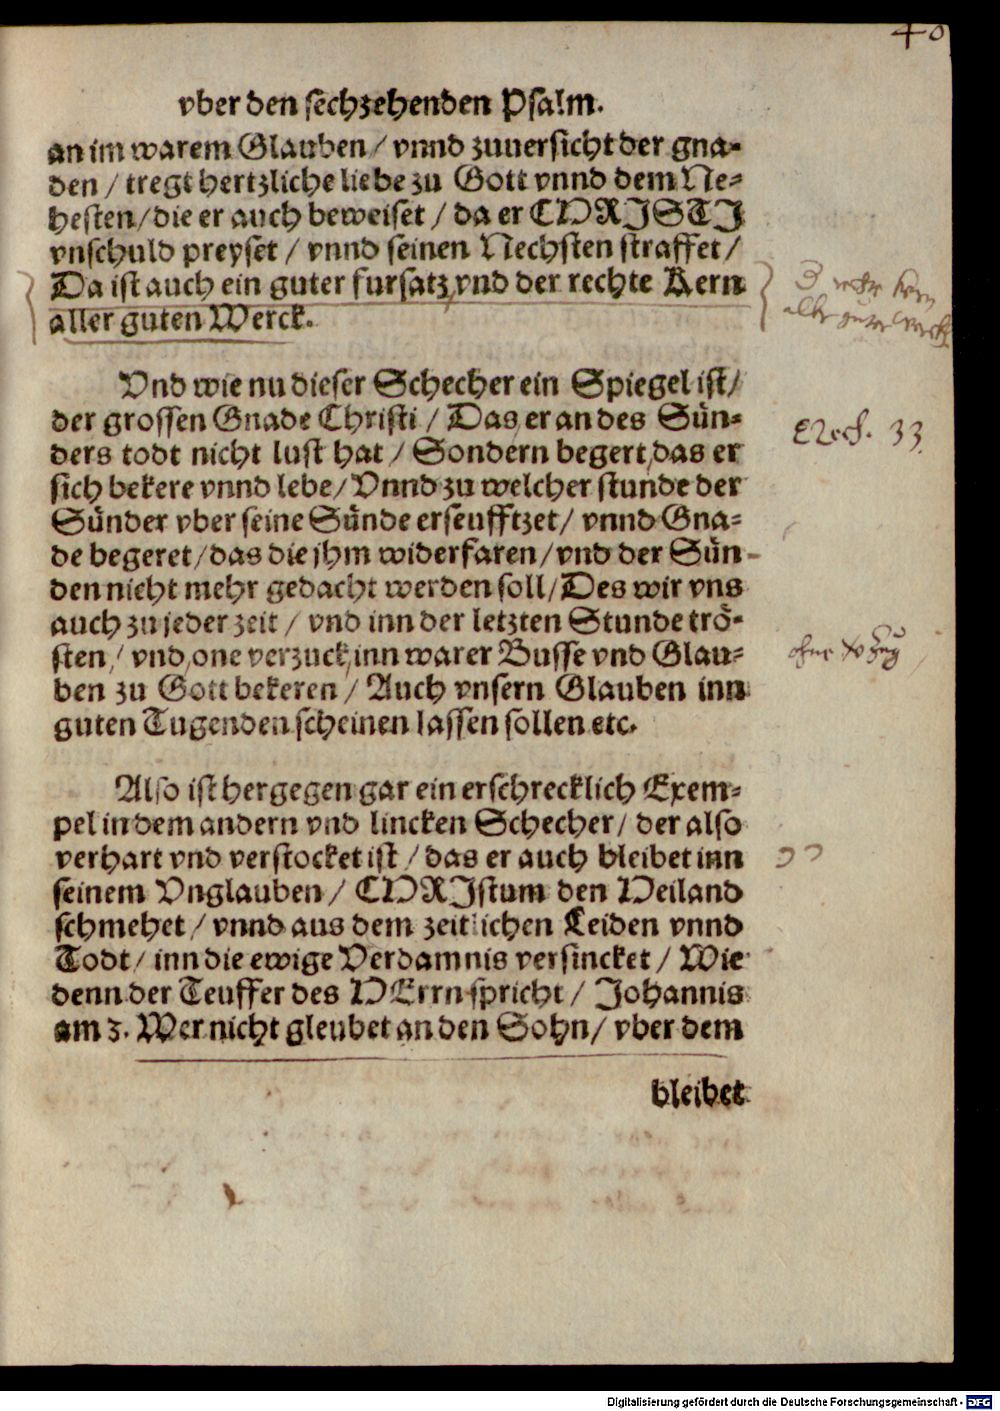 40
vber den sechzehenden Psalm.
an im warem Glauben / vnnd zuuersicht der gna-
den / tregt hertzliche liebe zu Gott vnnd dem Ne-
hesten / die er auch beweiset / da er CHRISTI
vnschuld preyset / vnnd seinen Nechsten straffet /
Da ist auch ein guter fursatz, vnd der rechte Kern
aller guten Werck.
Vnd wie nu dieser Schecher ein Spiegel ist /
der grossen Gnade Christi / Das er an des Sün-
ders todt nicht lust hat / Sondern begert, das er
sich bekere vnnd lebe / Vnnd zu welcher stunde der
Sünder vber seine Sünde erseufftzet / vnnd Gna-
de begeret / das die jhm widerfaren / vnd der Sün-
den nicht mehr gedacht werden soll / Des wir vns
auch zu jeder zeit / vnd inn der letzten Stunde trö-
sten / vnd one verzuck, inn warer Busse vnd Glau-
ben zu Gott bekeren / Auch vnsern Glauben inn
guten Tugenden scheinen lassen sollen etc.
Also ist hergegen gar ein erschrecklich Exem-
pel in dem andern vnd lincken Schecher / der also
verhart vnd verstocket ist / das er auch bleibet inn
seinem Vnglauben / CHRIstum den Heiland
schmehet / vnnd aus dem zeitlichen Leiden vnnd
Todt / inn die ewige Verdamnis versincket / Wie
denn der Teuffer des HErrn spricht / Johannis
am 3. Wer nicht gleubet an den Sohn / vber dem
bleibet
Ezech. 33.
Digitalisierung gefördert durch die Deutsche Forschungsgemeinschaft - DFG